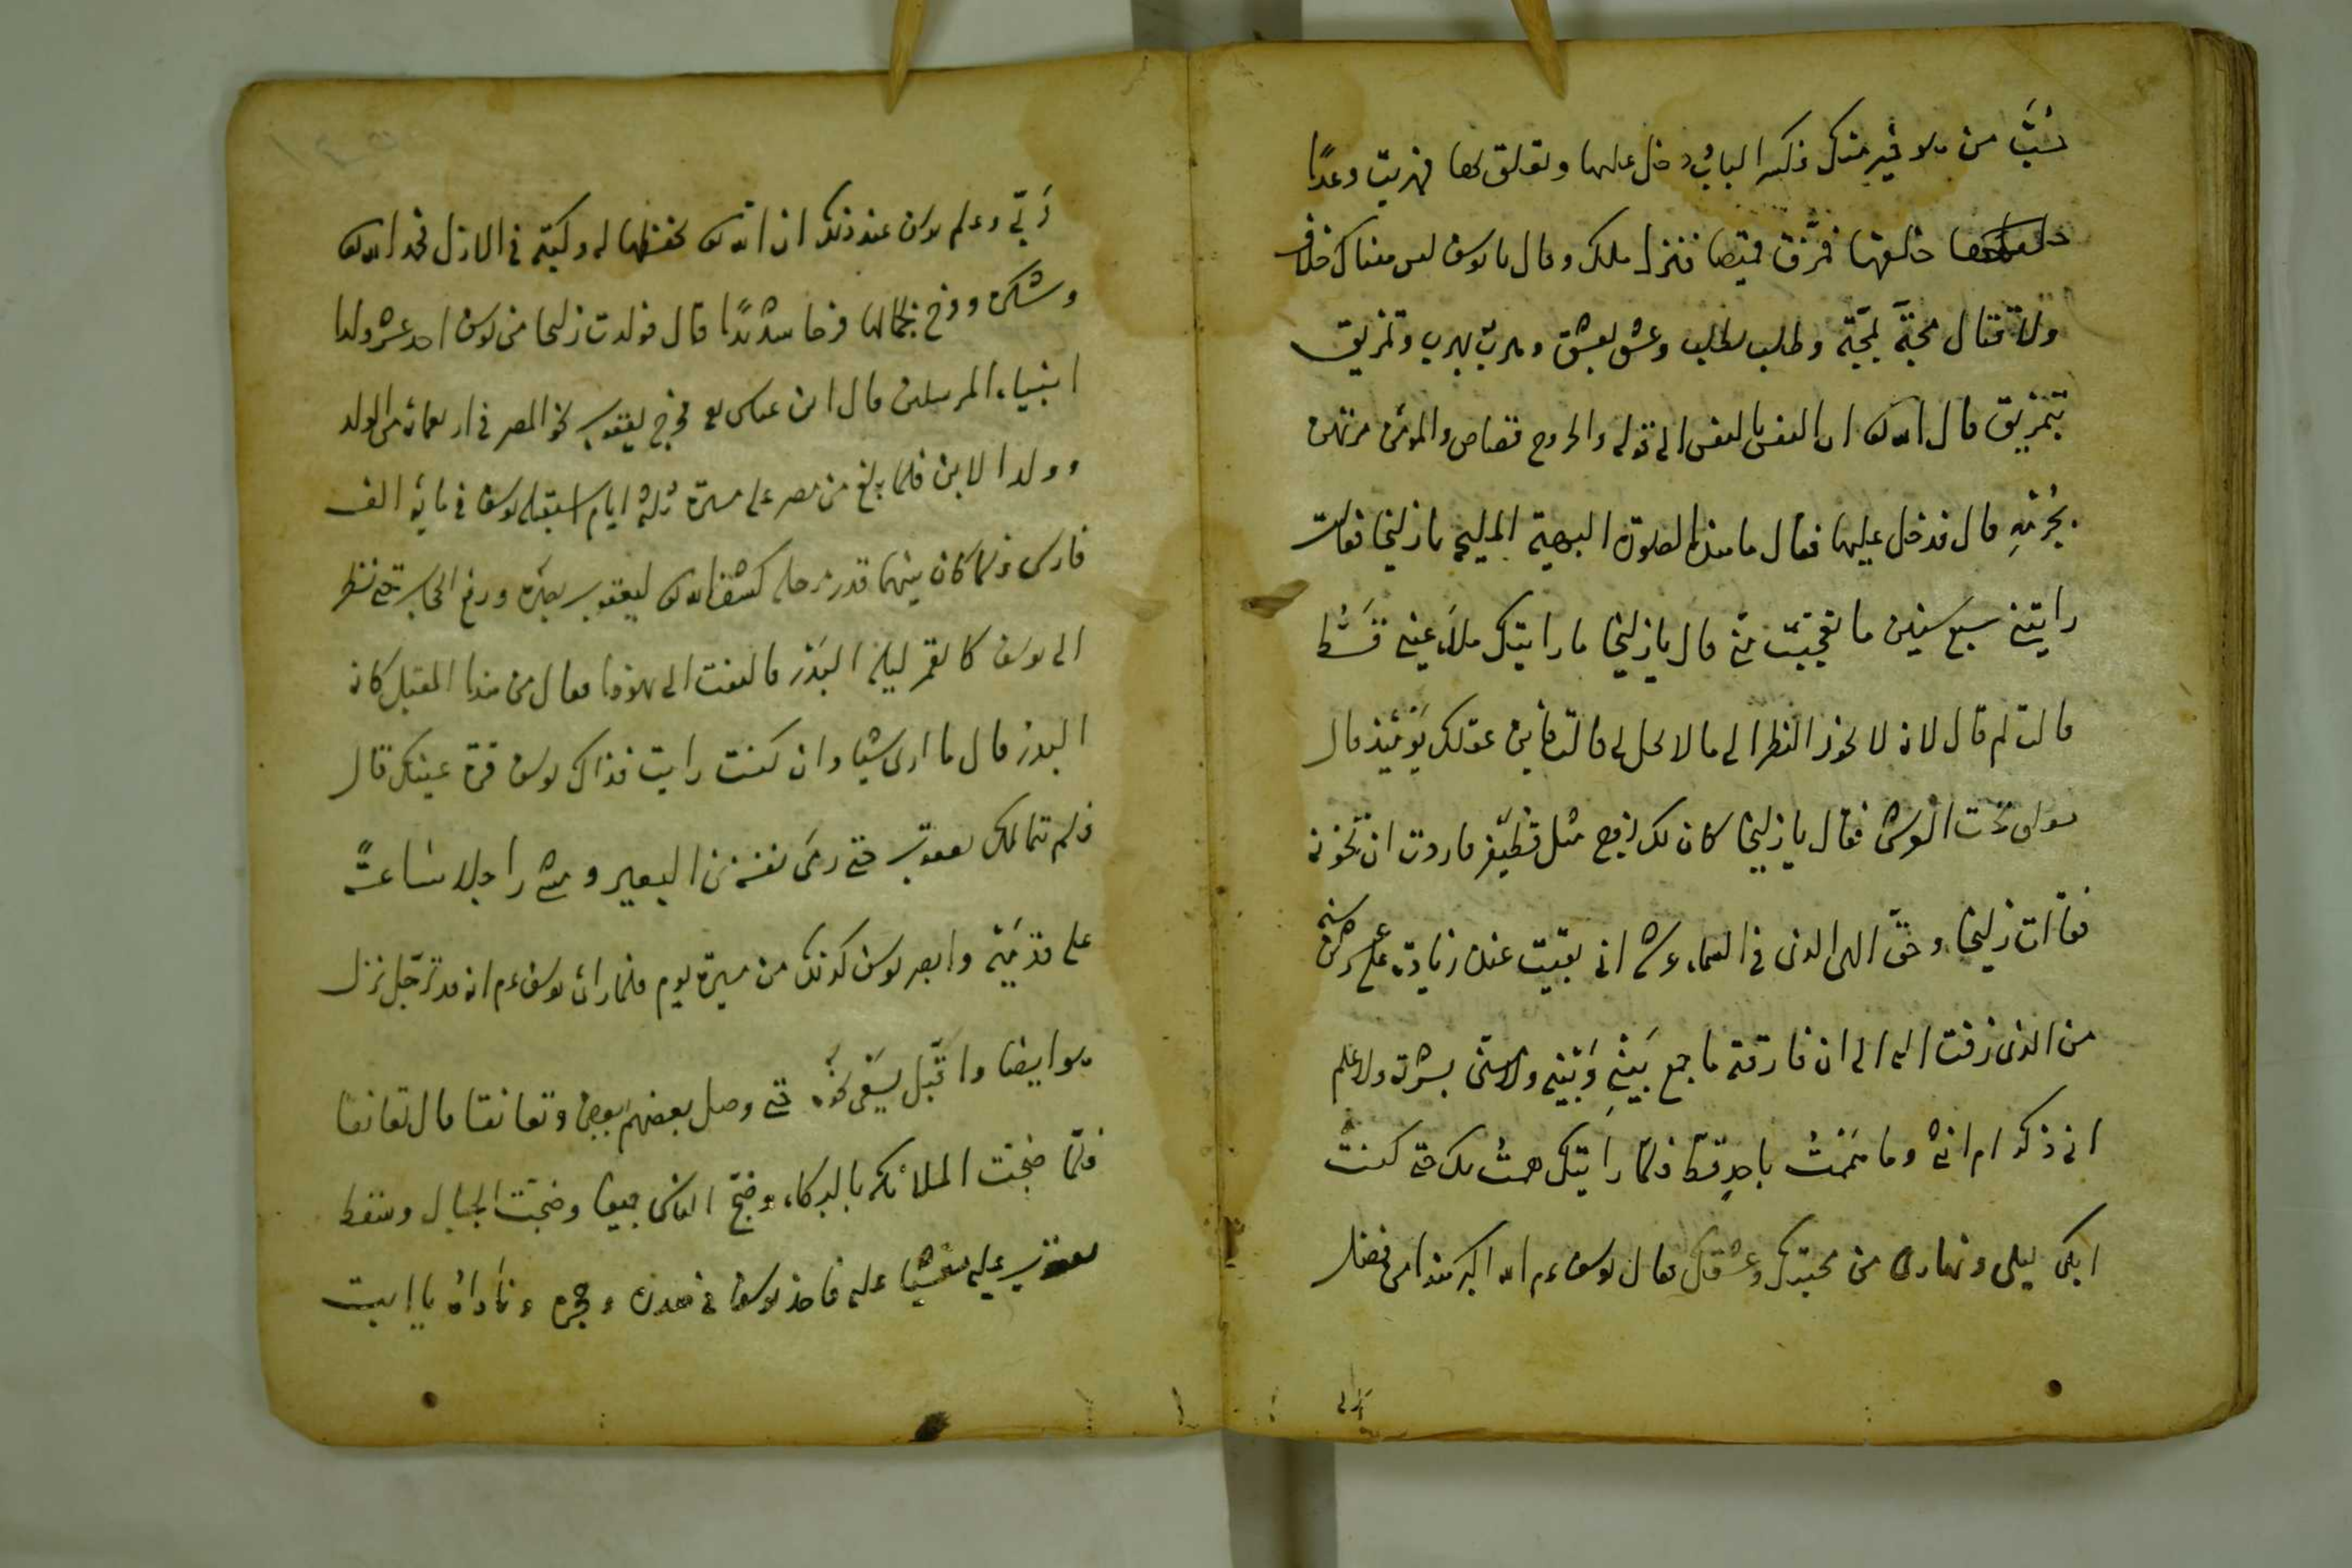 من هو خير منك فكسر الباب ودخل عليها وتعلق بها فهربت وعدا
خلفها فمزق قميصها فنزل ملك وقال يا يوسف ليس هناك خلاف
ولا قتال محبة بمحبة وطلب بطلب وعشق بعشق وهرب بهرب وتمزيق
بتمزيق قال الله تعالى ان النفس بالنفس الى قوله والجروح قصاص والمؤمن مرتهن
قال فدخل عليها فقال ما هذه الصورة البهية المليحة يا زليخا فقالت
رايتني سبع سنين ما تعجبت منى قال يا زليخا ما رايتك ملاء عيني قط
قالت لم قال لانه لا يجوز النظر الى ما لا يحل لى قالت فاين عقولك يومئذ قال
فقال يا زليخا كان لك زوج مثل قطيفر فاردت ان تخونه
فقالت زليخا وحق الهى الذى فى السماء عرشه انى بقيت عنده زيادة على عشرين سنة
من الذى زفت اليه الى ان فارقته ما جمع بينى وبينه ولا مسنى بشرة ولا علم
انى ذكر ام انثى وما هممت باحد قط فلما رايتك همت بك حتى كنت
ابكى ليلى ونهارى من محبتك وعشقك فقال يوسف ءم الله اكبر هذا من فضل
ربى وعلم يوسف عند ذلك ان الله تعالى حفظها له وكتبه فى الازل فحمد الله تعالى
وشكره وفرح بجمالها فرحا شديدا قال فولدت زليخا من يوسف احد عشر ولدا
انبياء المرسلين قال ابن عباس رضى فخرج يعقوب نحو المصر فى اربعمائة من الولد
وولد الابن فلما بلغ من مصر على مسيرة ثلثة ايام استقبله يوسف فى مائة الف
فارس فلما كان بينهما قدر مرحلة كشف الله تعالى ليعقوب بصره ورفع الحجاب حتى نظر
الى يوسف كالقمر ليلة البدر فالتفت الى يهوذا فقال من هذا المقبل كانه
البدر قال ما ارى شيا وان كنت رايت فذاك يوسف قرة عينك قال
فلم يتمالك يعقوب حتى رمى نفسه من البعير ومشى راجلا ساعة
على قدميه وابصر يوسف كذلك من مسيرة يوم فلما راى يوسف ءم انه قد ترجل نزل
هو ايضا واقبل يسعى نحوه حتى وصل بعضهم بعض وتعانقا قال تعانقا
فلما ضجت الملائكه بالبكاء وضج الناس جميعا وضجت الجبال وسقط
يعقوب عليه مغشيا عليه فاخذ يوسف فى صدره وحجره وناداه يا ابت